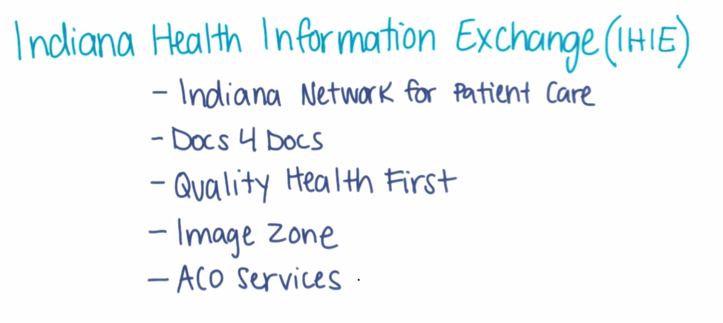 Indiana Health Information Exchange (IHIE)
- Indiana Network for Patient Care
- Docs 4 Docs
- Quality Health First
- Image Zone
- ACO Services